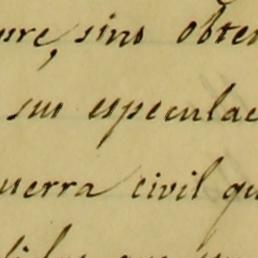 ure, sino obten
sus especulac
uerra civil qu